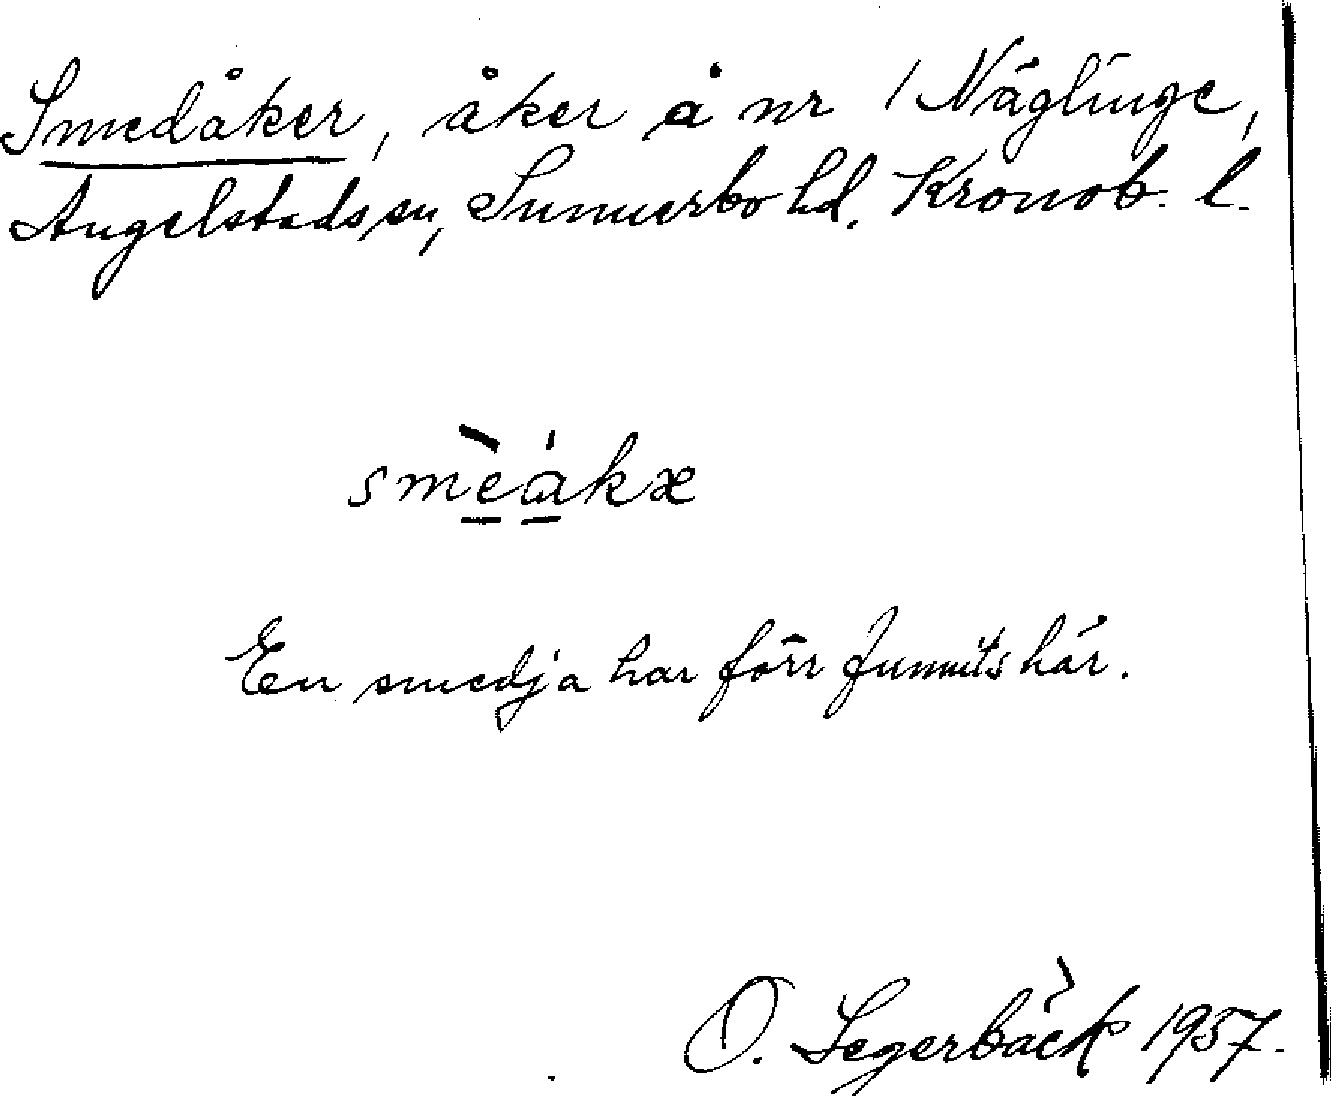 Smedåker, åker å nr 1 Näglinge,
Angelstads sn, Sunnerbo hd. Kronob. l.
smèákx
En smedja har förr funnits här.
O. Segerbäck 1957.